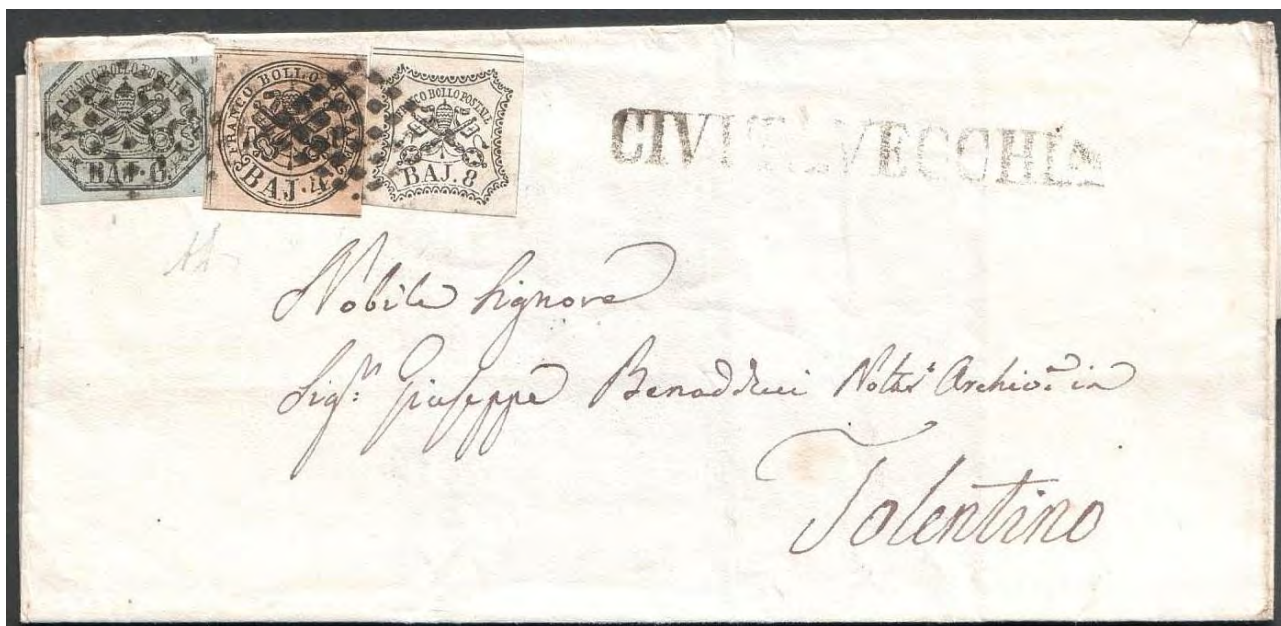 FRANCO BOLLO POSTALE
BAJ. 6.
FRANCO BOLLO POSTALE
BAJ. 4
FRANCO BOLLO POSTALE
BAJ. 8
CIVITAVECCHIA
Nobile Signore
Sigr. Giuseppe Benadduci Notar Archiv. in
Tolentino